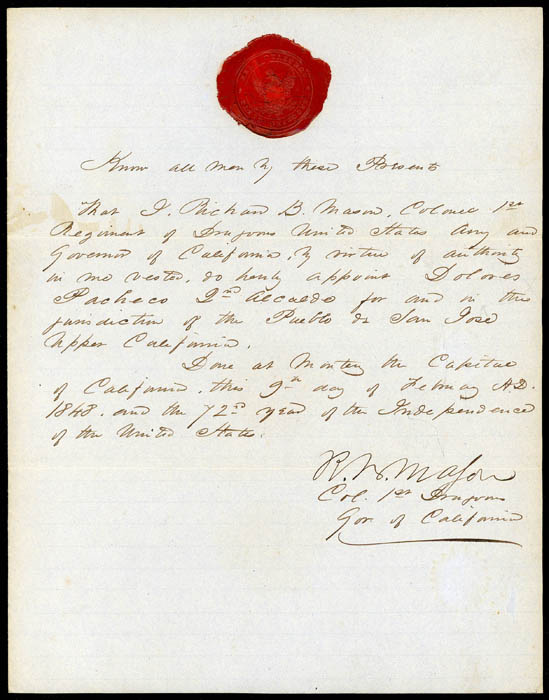 Know all men by these Presents
That I, Richard B. Mason, Colonel 1st
Regiment of Dragoons United States Army and
Governor of California, by virtue of authority
in me vested, do hereby appoint Dolores
Pacheco 2nd Alcalde for and in the
jurisdiction of the Pueblo de San José
Upper California.
Done at Monterey the Capital
of California, this 9th day of February A.D.
1848. and the 72nd year of the Independence
of the United States.
R. B. Mason
Col. 1st Dragoons
Gov. of California